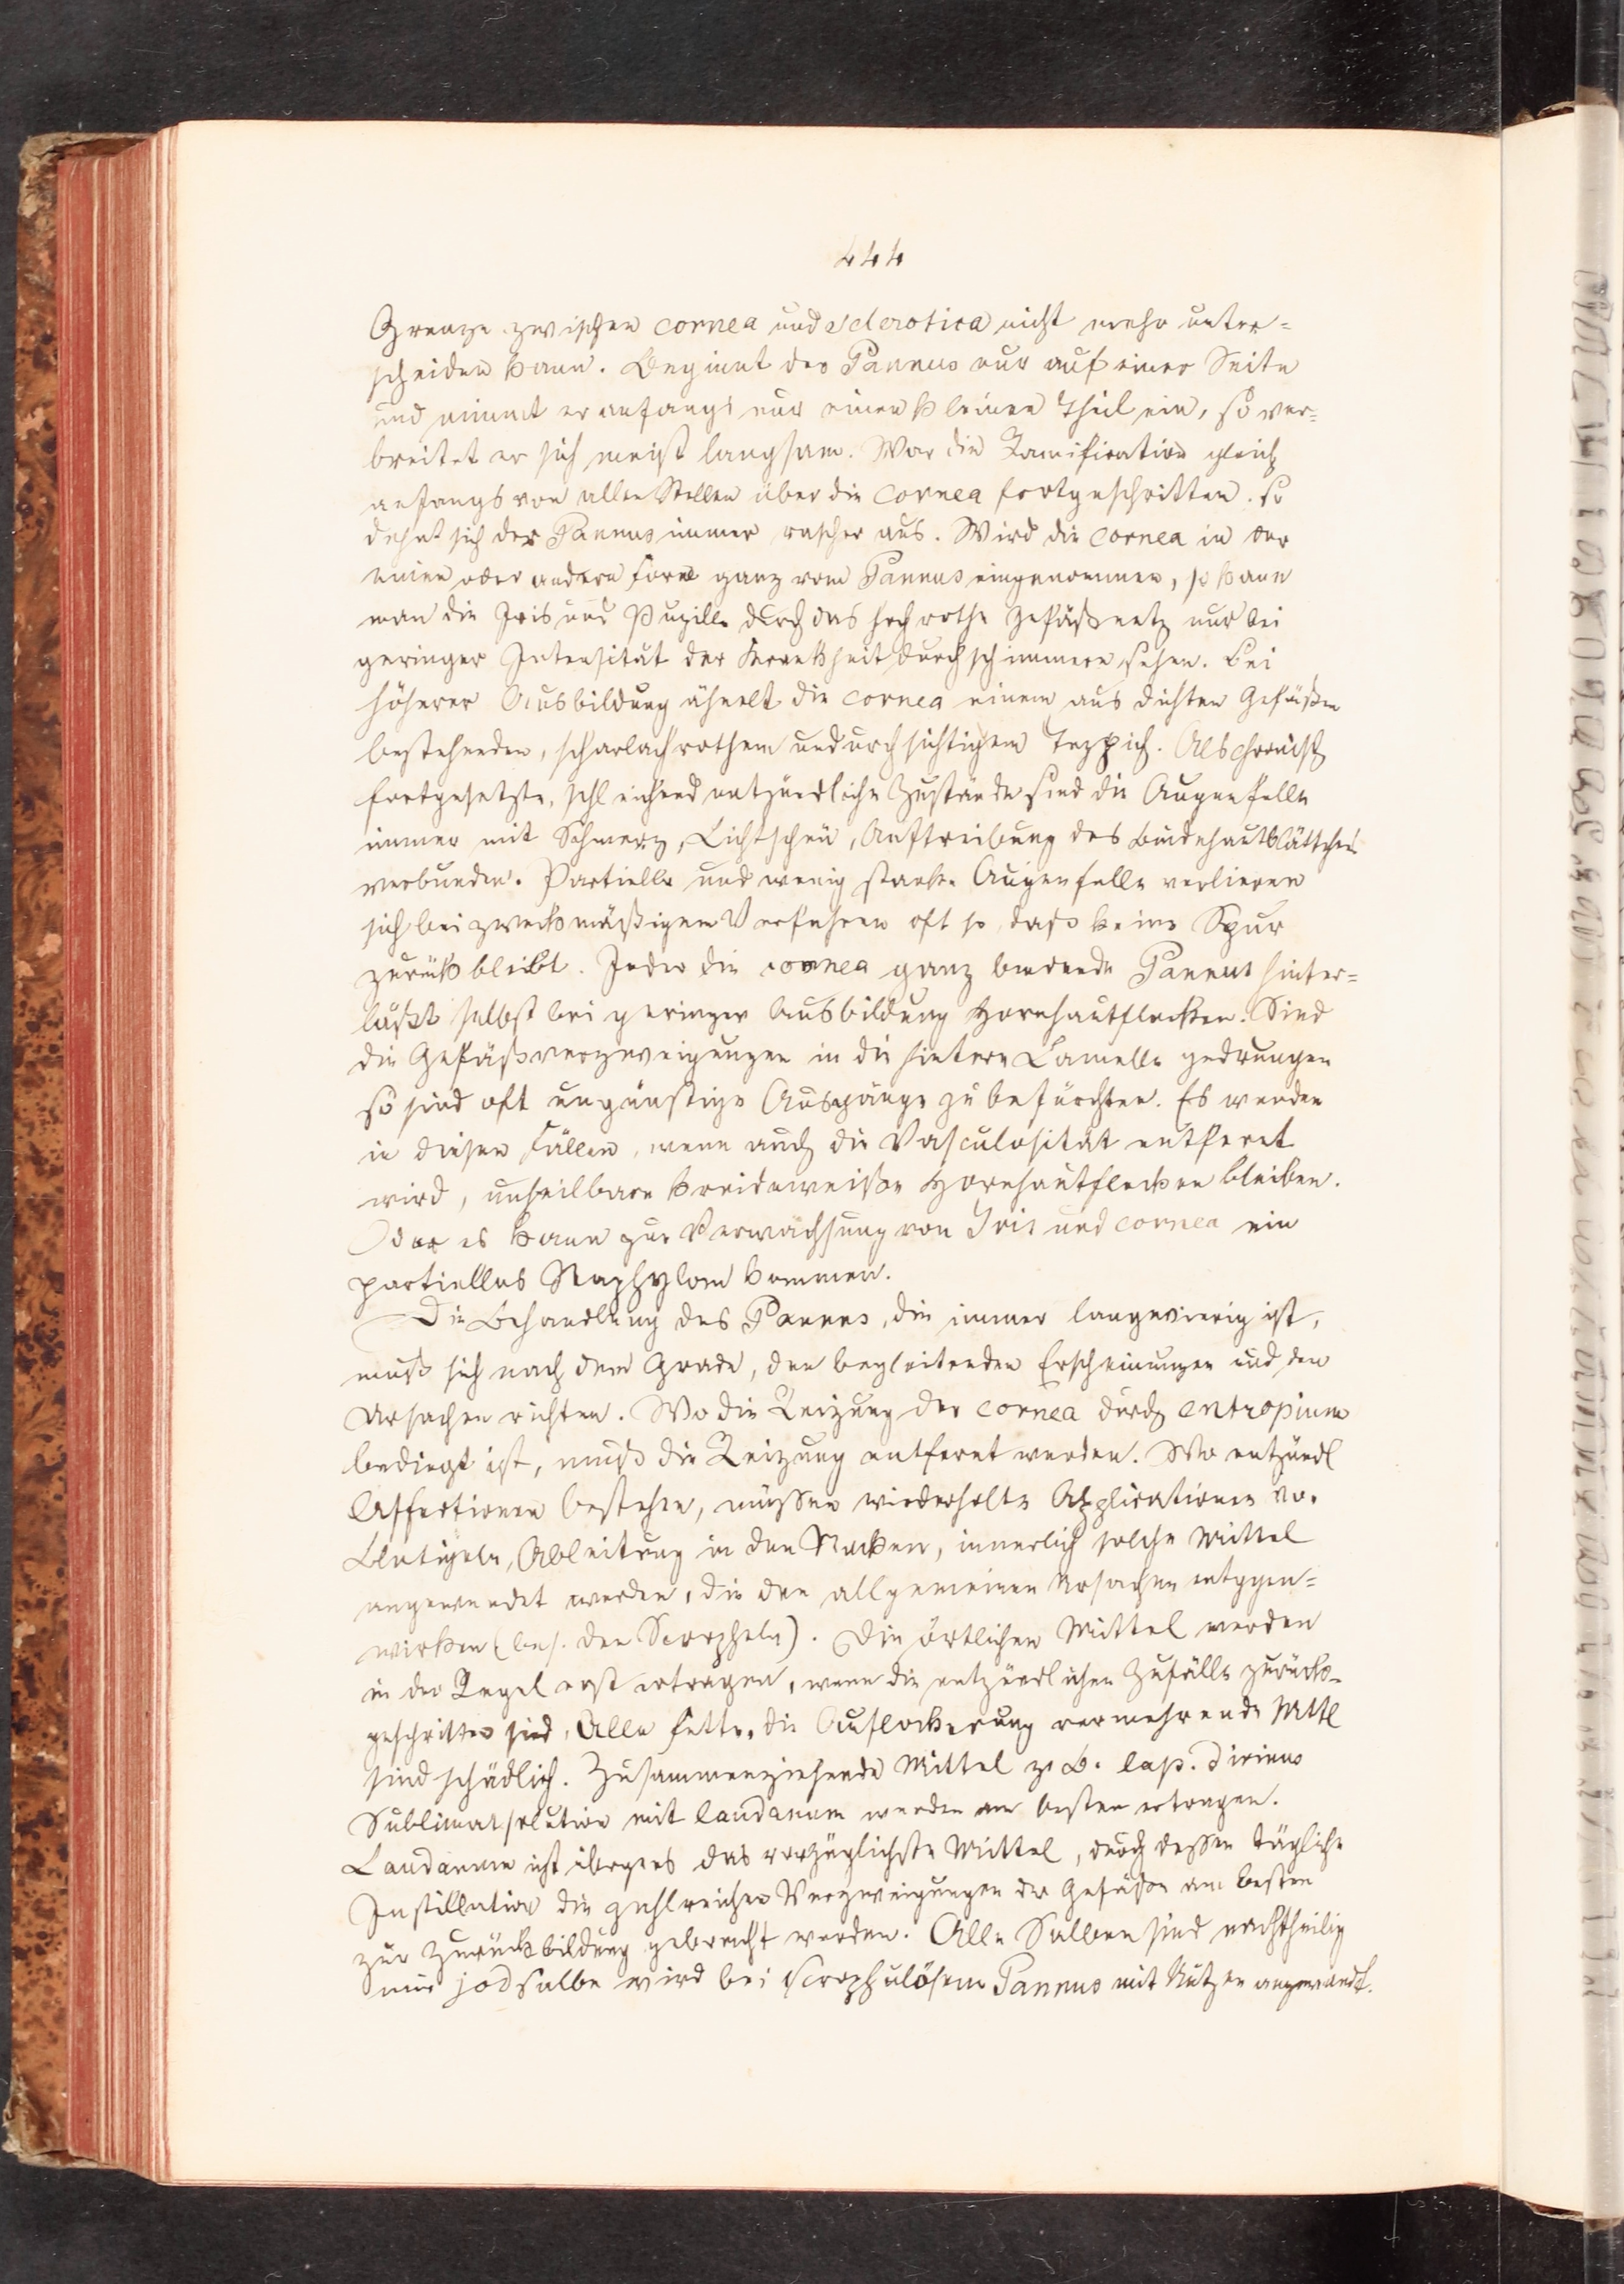 444
Grenze zwischen cornea und sclerotica nicht mehr unter=
scheiden kann. Beginnt der Pannus nur auf einer Seite
und nimmt er anfangs nur einen kleinen Theil ein, so ver=
breitet er sich meist langsam. War die Ramification gleich
anfangs von allen Stellen über die Cornea fortgeschritten, so
dehnt sich der Pannus immer rascher aus. Wird die Cornea in der
einen oder andern Form ganz vom Pannus eingenommen, so kann
man die Iris und Pupille durch das hochrothe Gefäßnetz nur bei
geringer Intensität der Krankheit durchschimmern sehen. Bei
höherer Ausbildung ähnelt die cornea einem aus dichten Gefäßen
bestehenden, scharlachrothem undurchsichtigem Teppich. Als chronisch
fortgesetzte, schleichend entzündliche Zustände sind die Augenfelle
immer mit Schmerz, Lichtscheu, Auftreibung des Bindehautblättchens
verbunden. Partielle und wenig starke Augenfelle verlieren
sich bei zweckmäßigem Verfahren oft so, daß keine Spur
zurück bleibt. Jeder die cornea ganz Pannus hinter=
läßt selbst bei geringer Ausbildung Hornhautflecken. Sind
die Gefäßverzweigungen in die hintern Lamelle gedrungen
so sind oft ungünstige Ausgänge zu befürchten. Es werden
in diesen Fällen, wenn auch die Vasculosität entfernt
wird, unheilbare kreideweiße Hornhautflecken bleiben.
Oder es kann zur Verwachsung von Iris und cornea ein
partielles Staphylom kommen.
Die Behandlung des Pannus, die immer langwierig ist,
muß sich nach dem Grade, den begleitenden Erscheinungen und den
Ursachen richten. Wo die Reizung der Cornea durch entropium
bedingt ist, muß die Reizung entfernt werden. Wo entzündl
Affectionen bestehen, müssen wiederholte Applicationen vo.
Blutigeln, Ableitung in den Nacken, innerlich solche Mittel
angewendet werden, die den allgemeinen Ursachen entggen=
wirken (bes. den Scropheln). Die örtlichen Mittel werden
in der Regel erst ertragen, wenn die entzündlichen Zufälle zurück=
geschritten sind. Alle fette, die Auflockerung vermehrende Mttl
sind schädlich. Zusammenziehende Mittel z. B. lap. divinus
Sublimatsolution mit laudanum werden am besten ertragen.
Laudanum ist übrgens das vorzüglichste Mittel, durch dessen tägliche
Instillation die zahlreichen Verzweigungen der Gefäße am besten
zur Zurückbildung gebracht werden. Alle Salben sind nachtheilig
nur jodsalbe wird bei scrophulösem Pannus mit Nutzen angewandt.